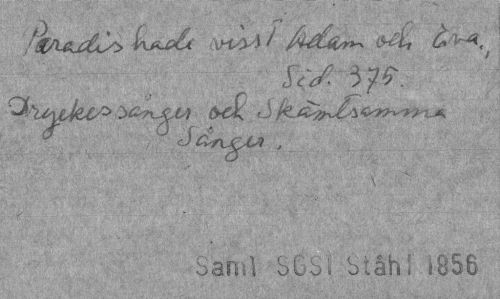 Paradis hade visst Adam och Eva.,
Sid. 375.
Dryckessånger och Skämtsamma
Sånger.
Saml SGSl Ståhl 1856